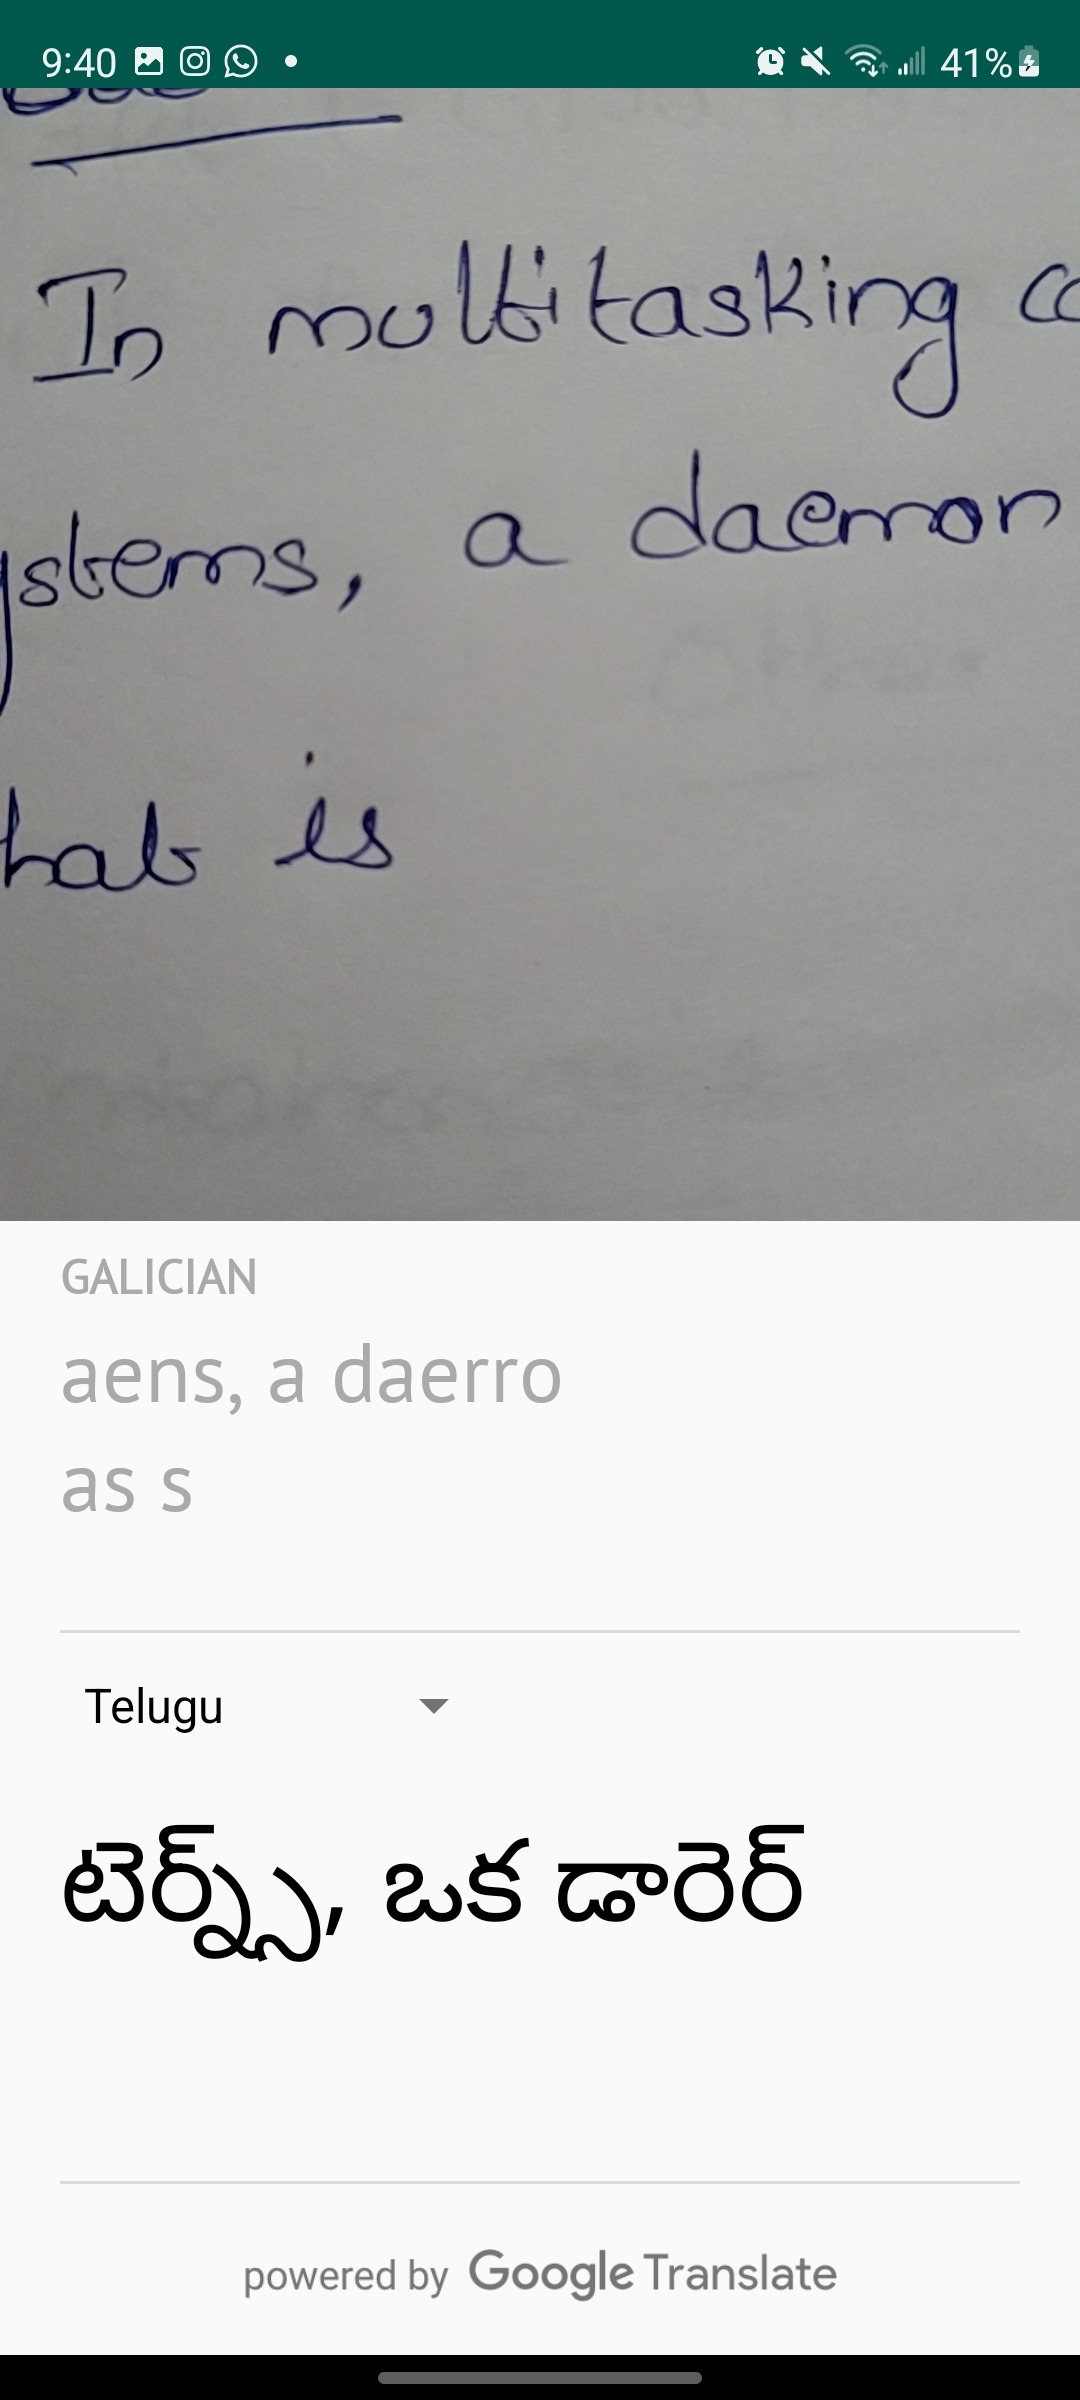 9:40 41%
In multitasking co
ystems, a daemon
hat is
GALICIAN
aens, a daerro
as s
Telugu
టెర్న్స్, ఒక డారెర్
powered by Google Translate